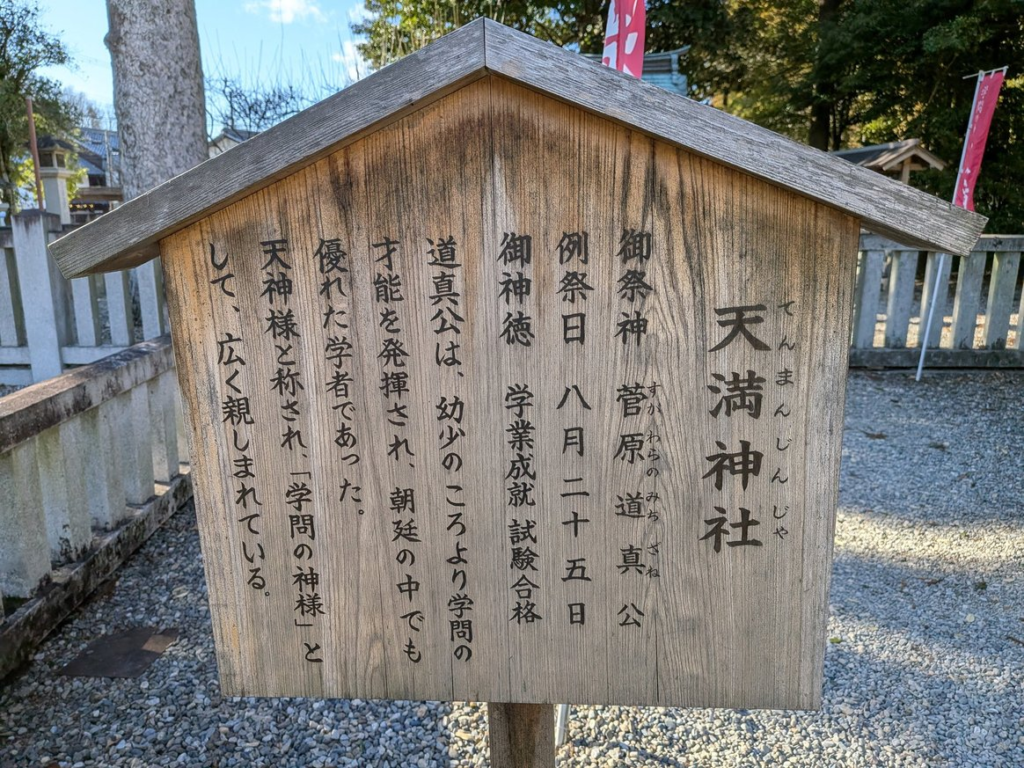 天満神社
てんまんじんじゃ
御祭神 菅原道真公
すがわらのみちざね
例祭日 八月二十五日
御神徳 学業成就 試験合格
道真公は、幼少のころより学問の
才能を発揮され、朝廷の中でも
優れた学者であった。
天神様と称され、「学問の神様」と
して、広く親しまれている。